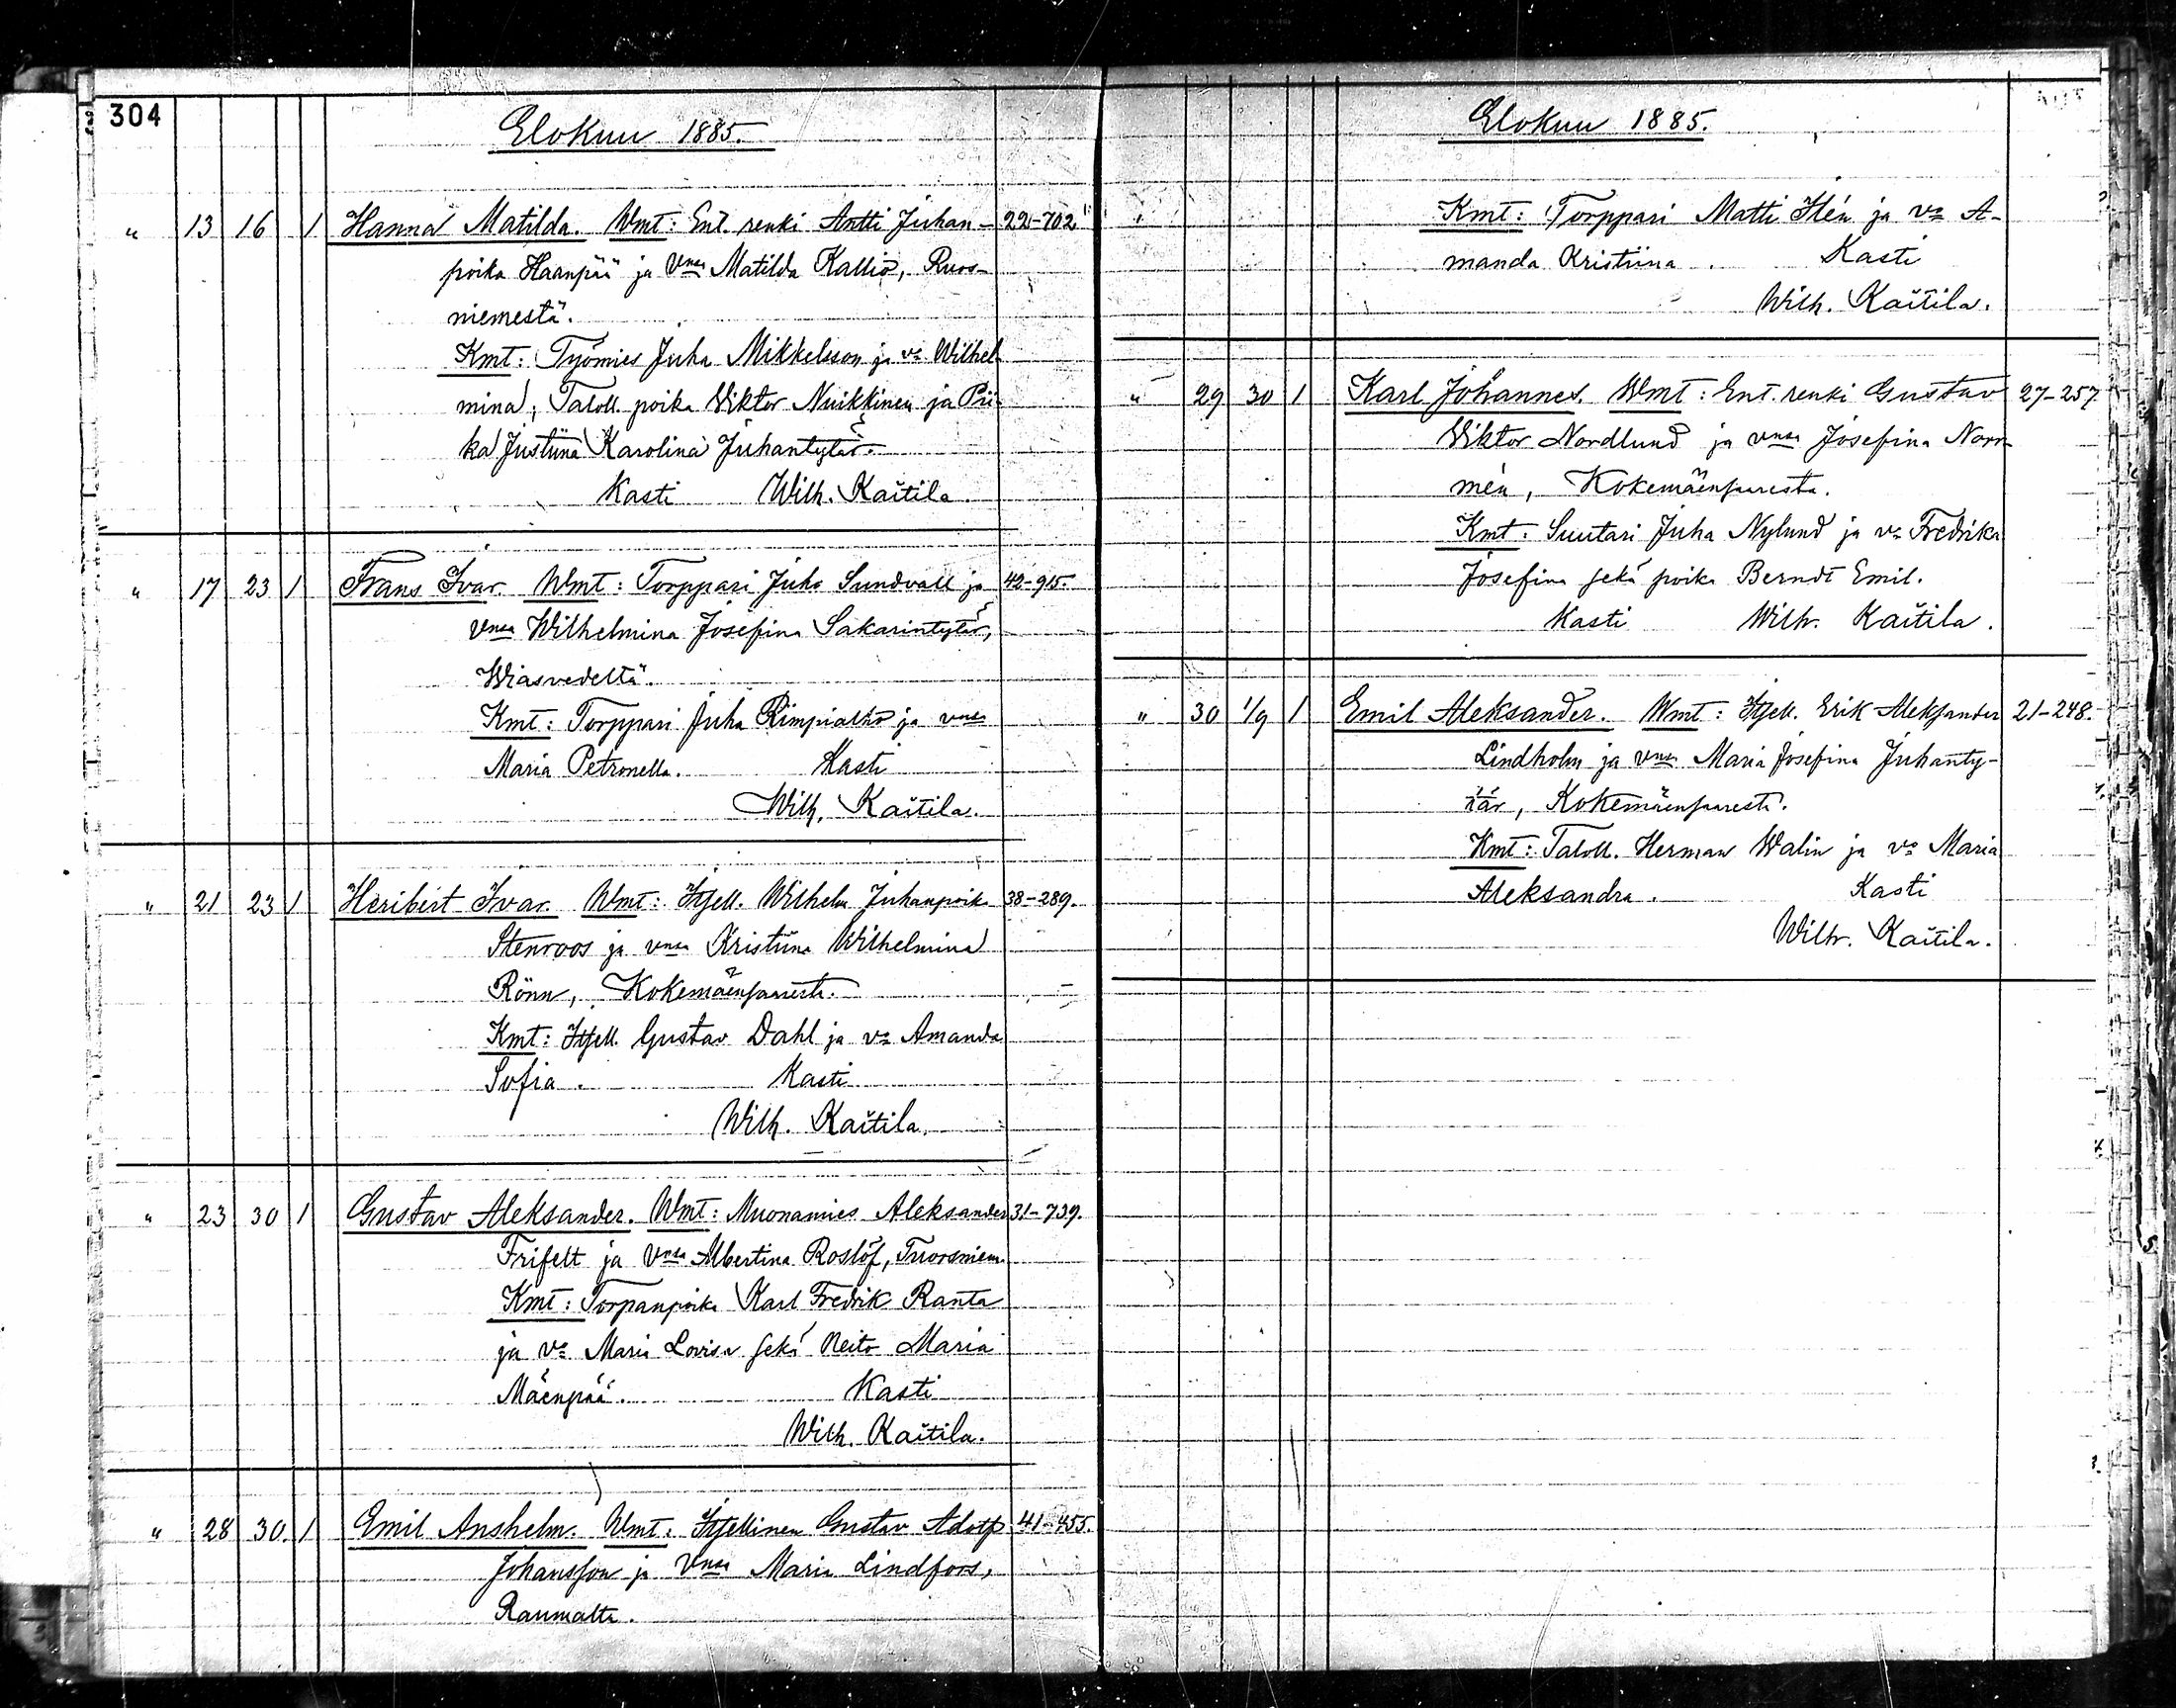 304
Elokuu 1885.
" 13 16 1 Hanna Matilda. Wmt: Ent. renki Antti Juhan- 22-702
poika Haanpää ja vnsa Matilda Kallio, Ruos-
niemestä.
Kmt: Työmies Juha Mikkelsson ja va Wilhel
mina, Taloll. poika Viktor Nuikkinen ja Pii-
ka Justiina Karolina Juhantytär.
Kasti Wilh. Kaitila.
" 17 23 1 Frans Ivar. Wmt: Torppari Juha Sundvall ja 42-915.
vnsa Wilhelmina Josefina Sakarintytär,
Wiasvedeltä.
Kmt: Torppari Juha Rimpialho ja vnsa
Maria Petronella. Kasti
Wilh. Kaitila.
" 21 23 1 Heribert Ivar. Wmt: Itsell. Wilhelm Juhanpoika 38-289.
Stenroos ja vnsa Kristiina Wilhelmina
Rönn, Kokemäensaaresta.
Kmt: Itsell. Gustav Dahl ja va Amanda
Sofia. Kasti
Wilh. Kaitila.
" 23 30 1 Gustav Aleksander. Wmt: Muonamies Aleksander 31-739.
Frifelt ja vnsa Albertina Roslöf, Tuorsniem.
Kmt: Torpanpoika Karl Fredrik Ranta
ja va Maria Lovisa sekä Neito Maria
Mäenpää. Kasti
Wilh. Kaitila.
" 28 30. 1 Emil Anshelm. Wmt: Itsellinen Gustav Adolf 41-455.
Johansson ja vnsa Maria Lindfors,
Raumalta.
Elokuu 1885.
" Kmt: Torppari Matti Itén ja va A-
manda Kristiina. Kasti
Wilh. Kaitila.
" 29 30 1 Karl Johannes. Wmt: Ent. renki Gustav 27-257
Viktor Nordlund ja vnsa Josefina Norr-
mén, Kokemäensaaresta.
Kmt: Suutari Juha Nylund ja va Fredrika
Josefina sekä poika Berndt Emil.
Kasti Wilh. Kaitila.
" 30 1/9 1 Emil Aleksander. Wmt: Itsell. Erik Aleksander 21-248.
Lindholm ja vnsa Maria Josefina Juhanty-
tär, Kokemäensaaresta.
Kmt: Taloll. Herman Walin ja va Maria
Aleksandra. Kasti
Wilh. Kaitila.